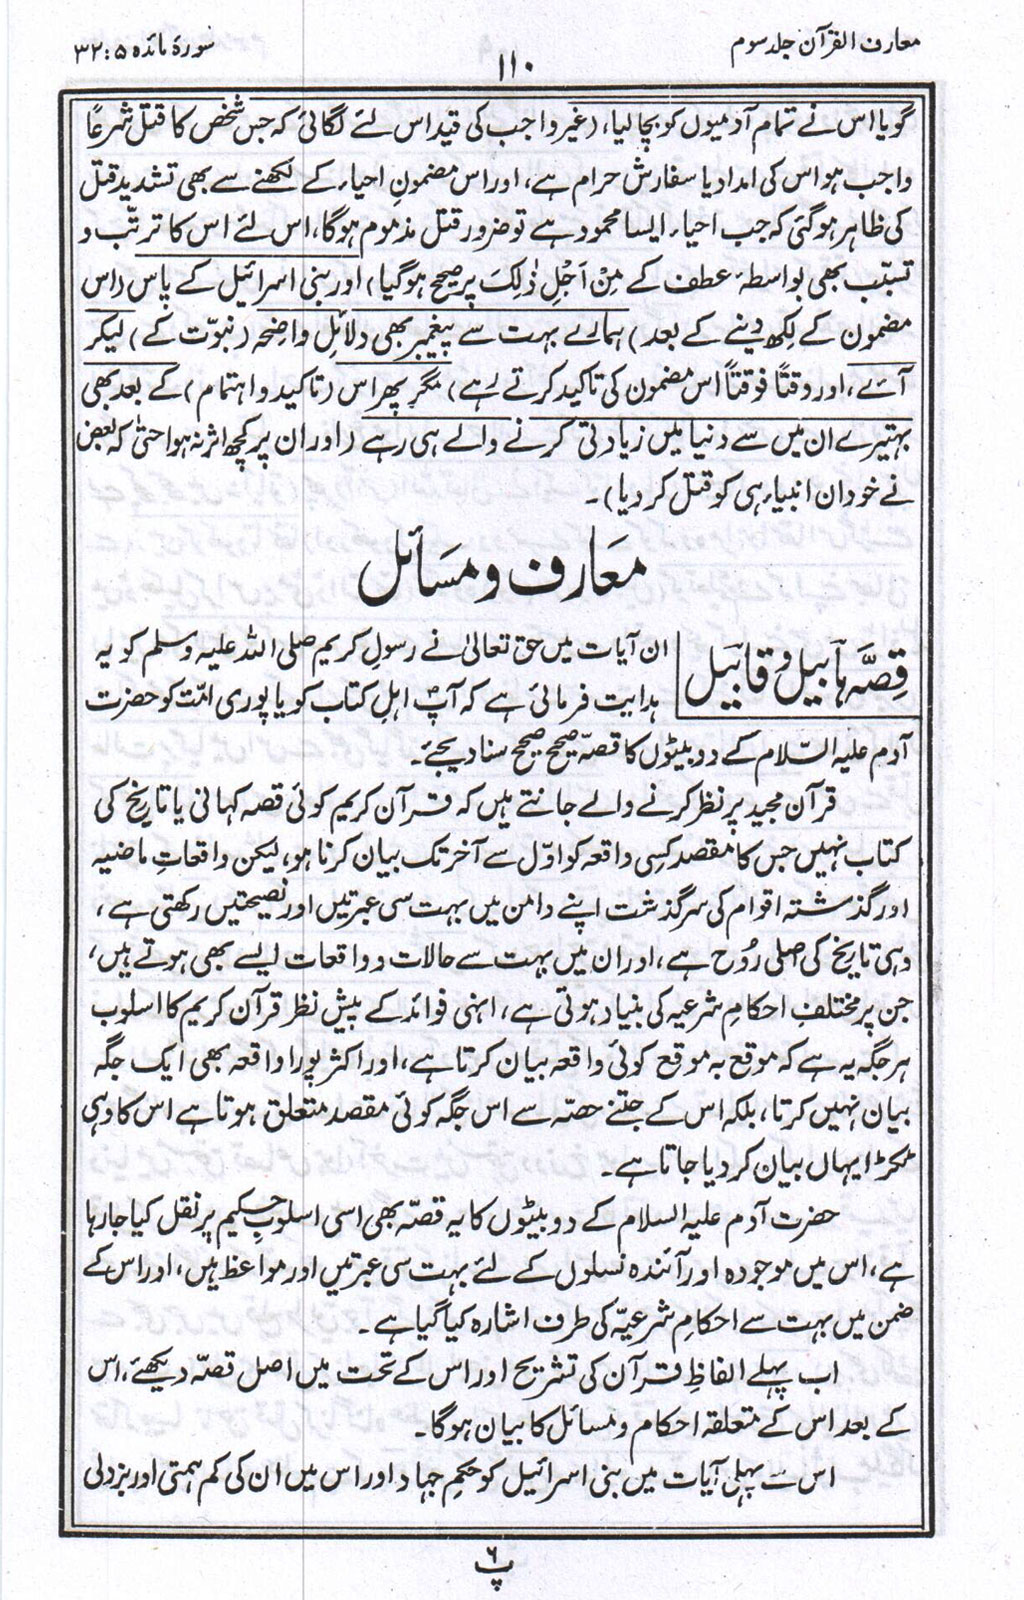 معارف القرآن جلد سوم
۱۱۰
سورۂ مائدہ ۵ : ۳۲
گویا اس نے تمام آدمیوں کو بچا لیا، (غیر واجب کی قید اس لئے لگائی کہ جس شخص کا قتل شرعاً
واجب ہو اس کی امداد یا سفارش حرام ہے، اور اس مضمونِ احیاء کے لکھنے سے بھی تشدید قتل
کی ظاہر ہوگئی کہ جب احیاء ایسا محمود ہے تو ضرور قتل مذموم ہوگا، اس لئے اس کا ترتّب و
تسبّب بھی بواسطۂ عطف کے مِنْ اَجْلِ ذٰلِکَ پر صحیح ہوگیا) اور بنی اسرائیل کے پاس (اس
مضمون کے لکھ دینے کے بعد) ہمارے بہت سے پیغمبر بھی دلائلِ واضحہ (نبوّت کے) لیکر
آئے، اور وقتاً فوقتاً اس مضمون کی تاکید کرتے رہے) مگر پھر اس (تاکید و اہتمام) کے بعد بھی
بہتیرے ان میں سے دنیا میں زیادتی کرنے والے ہی رہے (اور ان پر کچھ اثر نہ ہوا حتیٰ کہ بعض
نے خود ان انبیاء ہی کو قتل کر دیا)۔
مَعَارف و مسَائل
قِصَّہ ہَابیل و قابَیل
ان آیات میں حق تعالیٰ نے رسول کریم صلی اللہ علیہ وسلم کو یہ
ہدایت فرمائی ہے کہ آپؐ اہلِ کتاب کو یا پوری امّت کو حضرت
آدم علیہ السّلام کے دو بیٹوں کا قصّہ صحیح صحیح سنا دیجئے۔
قرآن مجید پر نظر کرنے والے جانتے ہیں کہ قرآن کریم کوئی قصہ کہانی یا تاریخ کی
کتاب نہیں جس کا مقصد کسِی واقعہ کو اوّل سے آخر تک بیان کرنا ہو، لیکن واقعاتِ ماضیہ
اور گذشتہ اقوام کی سرگذشت اپنے دامن میں بہت سی عبرتیں اور نصیحتیں رکھتی ہے،
وہی تاریخ کی اصلی رُوح ہے، اور ان میں بہت سے حالات و واقعات ایسے بھی ہوتے ہیں،
جن پر مختلف احکامِ شرعیہ کی بنیاد ہوتی ہے، انہی فوائد کے پیش نظر قرآن کریم کا اسلوب
ہر جگہ یہ ہے کہ موقع بہ موقع کوئی واقعہ بیان کرتا ہے، اور اکثر پورا واقعہ بھی ایک جگہ
بیان نہیں کرتا، بلکہ اس کے جتنے حصّہ سے اس جگہ کوئی مقصد متعلق ہوتا ہے اس کا وہی
ٹکڑا یہاں بیان کر دیا جاتا ہے۔
حضرت آدم علیہ السلام کے دو بیٹوں کا یہ قصّہ بھی اسی اسلوبِ حکیم پر نقل کیا جا رہا
ہے، اس میں موجودہ اور آئندہ نسلوں کے لئے بہت سی عبرتیں اور مواعظ ہیں، اور اس کے
ضمن میں بہت سے احکامِ شرعیّہ کی طرف اشارہ کیا گیا ہے۔
اب پہلے الفاظِ قرآن کی تشریح اور اس کے تحت میں اصل قصّہ دیکھئے، اس
کے بعد اس کے متعلقہ احکام و مسائل کا بیان ہوگا۔
اس سے پہلی آیات میں بنی اسرائیل کو حکمِ جہاد اور اس میں ان کی کم ہمتی اور بزدلی
۶
پ